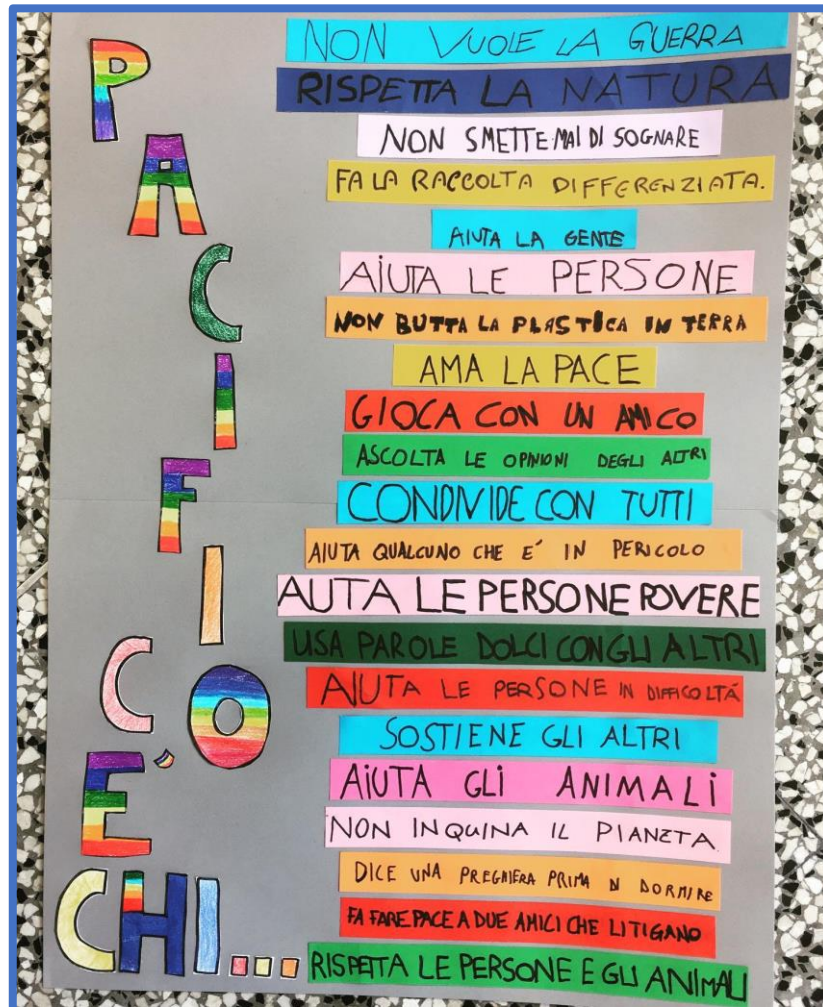 PACIFICO
C'È
CHI...
NON VUOLE LA GUERRA
RISPETTA LA NATURA
NON SMETTE MAI DI SOGNARE
FA LA RACCOLTA DIFFERENZIATA.
AIUTA LA GENTE
AIUTA LE PERSONE
NON BUTTA LA PLASTICA IN TERRA
AMA LA PACE
GIOCA CON UN AMICO
ASCOLTA LE OPINIONI DEGLI ALTRI
CONDIVIDE CON TUTTI
AIUTA QUALCUNO CHE E' IN PERICOLO
AUTA LE PERSONE POVERE
USA PAROLE DOLCI CON GLI ALTRI
AIUTA LE PERSONE IN DIFFICOLTÁ
SOSTIENE GLI ALTRI
AIUTA GLI ANIMALI
NON INQUINA IL PIANETA
DICE UNA PREGHIERA PRIMA DI DORMIRE
FA FARE PACE A DUE AMICI CHE LITIGANO
RISPETTA LE PERSONE E GLI ANIMALI